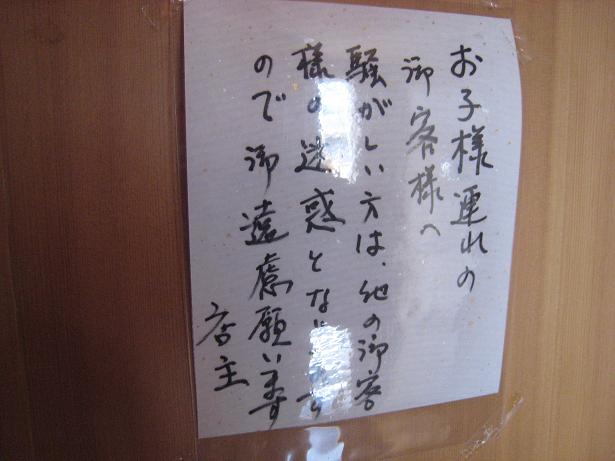 お子様連れの
御客様へ
騒がしい方は、他の御客
様の迷惑となります
ので御遠慮願います
店主